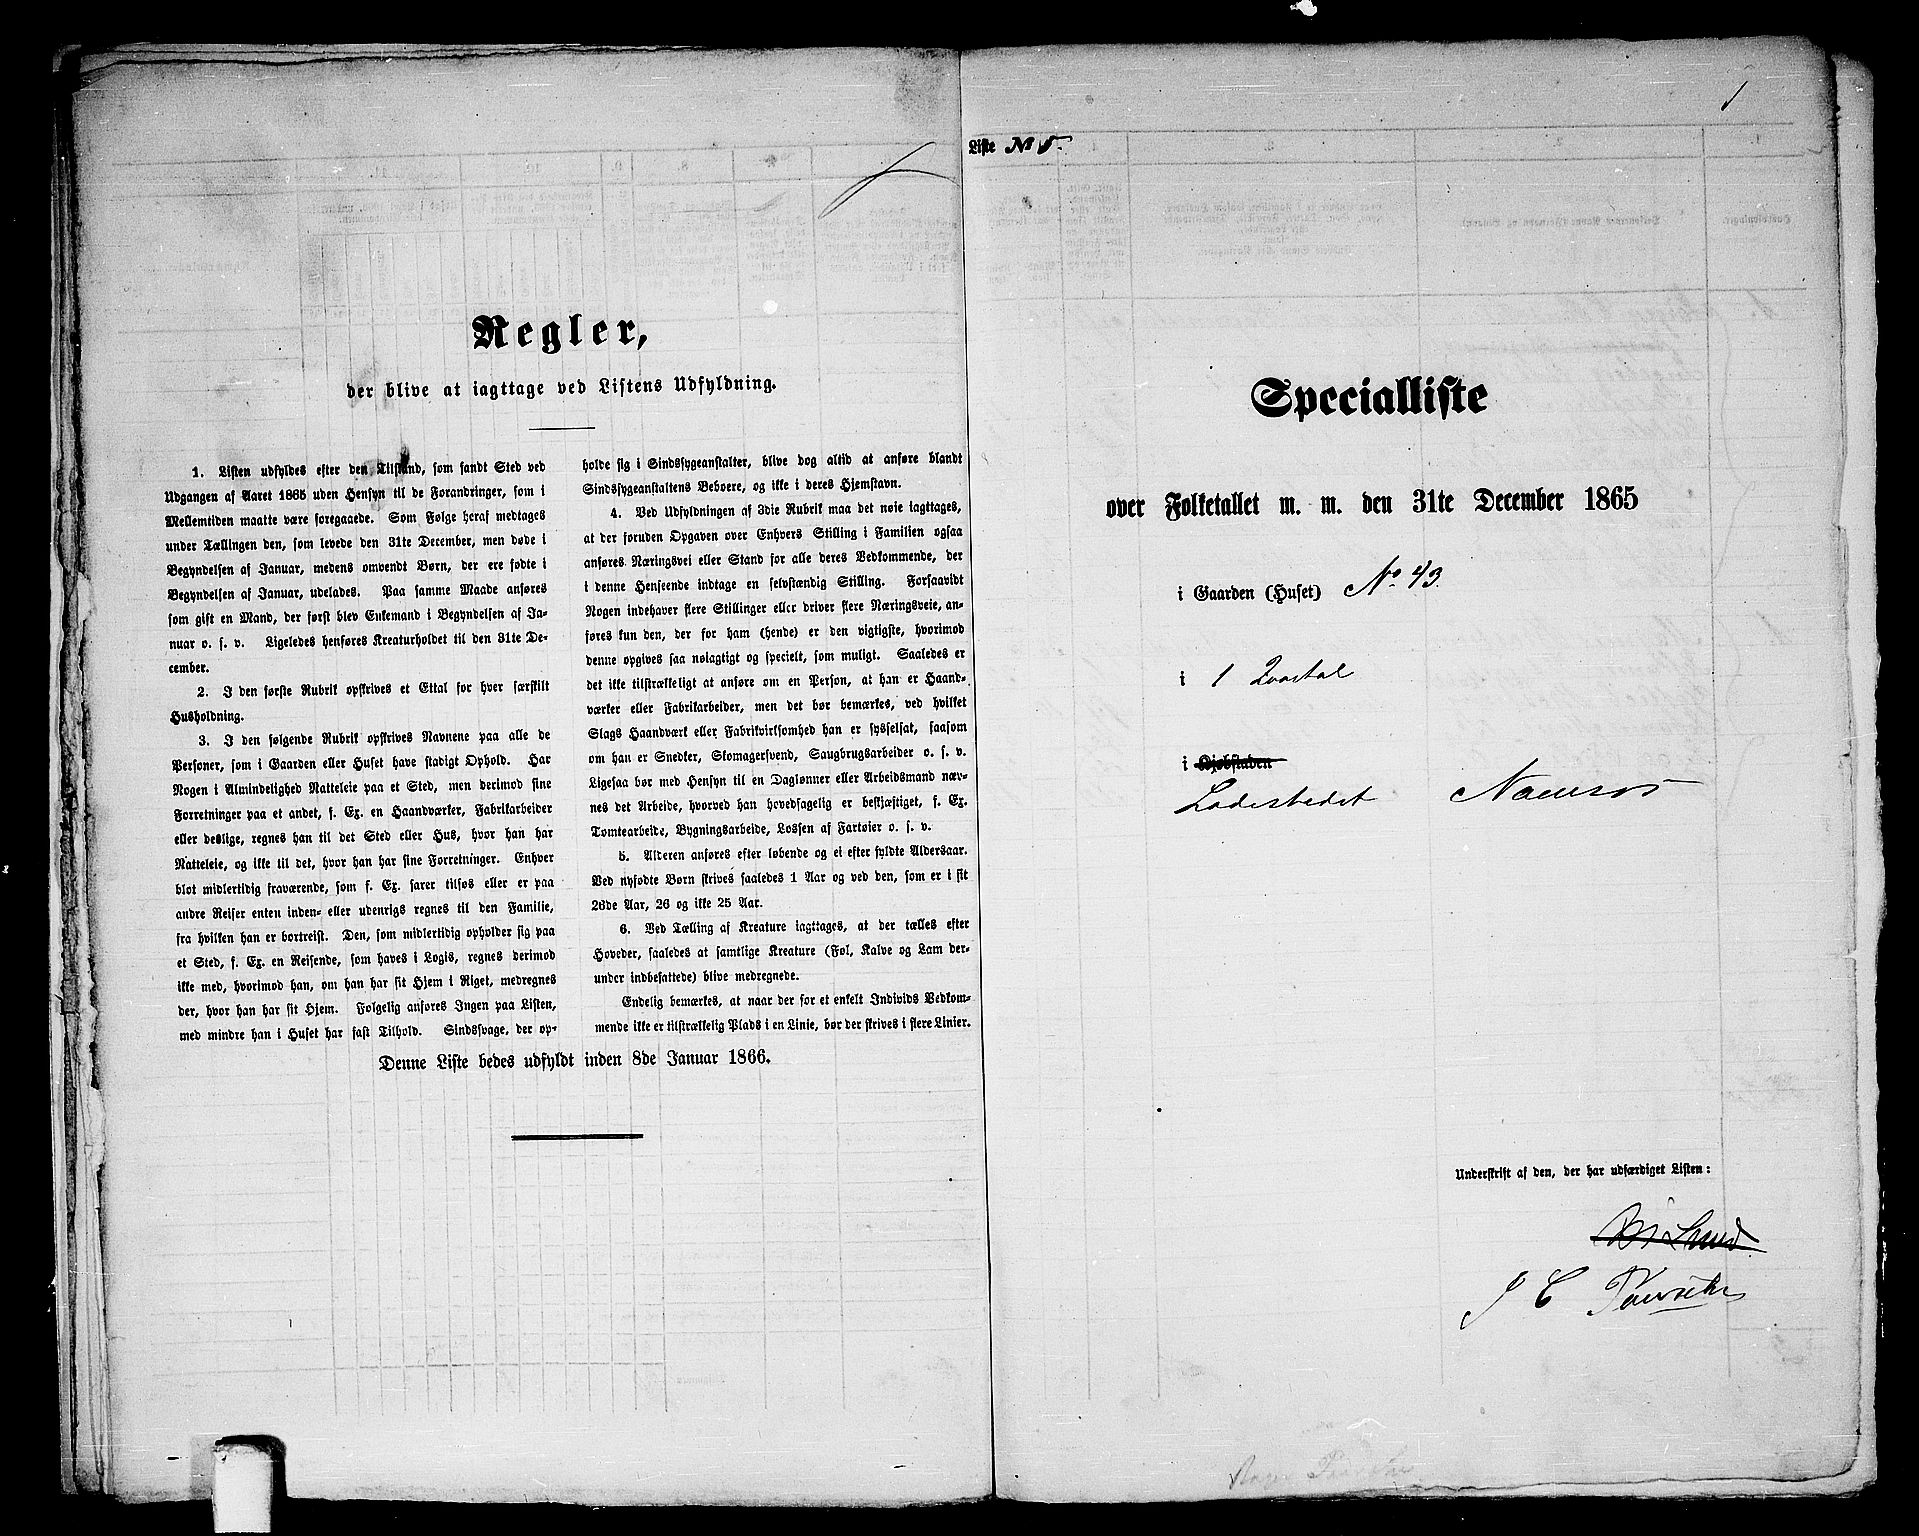 Regler,
der blive at iagttage ved Listens Udfyldning.
1. Listen udfyldes efter den Tilstand, som fandt Sted ved
Udgangen af Aaret 1865 uden Hensyn til de Forandringer, som i
Mellemtiden maatte være foregaaede. Som Følge heraf medtages
under Tællingen den, som levede den 31te December, men døde i
Begyndelsen af Januar, medens omvendt Børn, der ere fødte i
Begyndelsen af Januar, udelades. Paa samme Maade anføres
som gift en Mand, der først blev Enkemand i Begyndelsen af Ja-
nuar o. s. v. Ligeledes henføres Kreaturholdet til den 31te De-
cember.
2. I den første Rubrik opskrives et Ettal for hver særskilt
Husholdning.
3. I den følgende Rubrik opskrives Navnene paa alle de
Personer, som i Gaarden eller Huset have stadigt Ophold. Har
Nogen i Almindelighed Natteleie paa et Sted, men derimod sine
Forretninger paa et andet, f. Ex. en Haandværker, Fabrikarbeider
eller deslige, regnes han til det Sted eller Hus, hvor han har
Natteleie, og ikke til det, hvor han har sine Forretninger. Enhver
blot midlertidig fraværende, som f. Ex. farer tilsøs eller er paa
andre Reiser enten inden- eller udenrigs regnes til den Familie,
fra hvilken han er bortreist. Den, som midlertidig opholder sig paa
et Sted, f. Ex. en Reisende, som haves i Logis, regnes derimod
ikke med, hvorimod han, om han har sit Hjem i Riget, medregnes
der, hvor han har sit Hjem. Følgelig anføres Ingen paa Listen,
med mindre han i Huset har fast Tilhold. Sindssvage, der op-
holde sig i Sindssygeanstalter, blive dog altid at anføre blandt
Sindssygeanstaltens Beboere, og ikke i deres Hjemstavn.
4. Ved Udfyldningen af 3die Rubrik maa det nøie iagttages,
at der foruden Opgaven over Enhvers Stilling i Familien ogsaa
anføres Næringsvei eller Stand for alle deres Vedkommende, der
i denne Henseende indtage en selvstændig Stilling. Forsaavidt
Nogen indehaver flere Stillinger eller driver flere Næringsveie, an-
føres kun den, der for ham (hende) er den vigtigste, hvorimod
denne opgives saa nøiagtigt og specielt, som muligt. Saaledes er
det ikke tilstrækkeligt at anføre om en Person, at han er Haand-
værker eller Fabrikarbeider, men det bør bemærkes, ved hvilket
Slags Haandværk eller Fabrikvirksomhed han er sysselsat, saasom
om han er Snedker, Skomagersvend, Saugbrugsarbeider o. s. v.
Ligesaa bør med Hensyn til en Daglønner eller Arbeidsmand næv-
nes det Arbeide, hvorved han hovedsagelig er beskjæftiget, f. Ex.
Tomtearbeide, Bygningsarbeide, Lossen af Fartøier o. s. v.
5. Alderen anføres efter løbende og ei efter fyldte Aldersaar.
Ved nyfødte Børn skrives saaledes 1 Aar og ved den, som er i sit
26de Aar, 26 og ikke 25 Aar.
6. Ved Tælling af Kreature iagttages, at der tælles efter
Hoveder, saaledes at samtlige Kreature (Føl, Kalve og Lam der-
under indbefattede) blive medregnede.
Endelig bemærkes, at naar der for et enkelt Individs Vedkom-
mende ikke er tilstrækkelig Plads i en Linie, bør der skrives i flere Linier.
Denne Liste bedes udfyldt inden 8de Januar 1866.
1
Liste № 5.
Specialliste
over Folketallet m. m. den 31te December 1865
i Gaarden (Huset) No 43.
i 1 Qvartal
i Kjøbstaden
Ladestedet Namsos
Underskrift af den, der har udfærdiget Listen:
Lund
J C